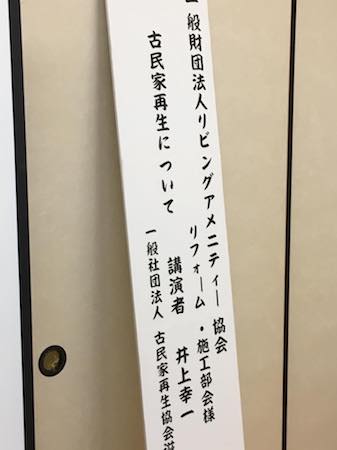 一般財団法人リビングアメニティー協会
リフォーム・施工部会様
古民家再生について
講演者 井上幸一
一般社団法人 古民家再生協会滋